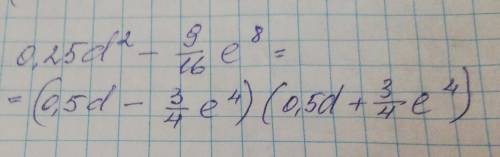 0,25d² − 9/16 e⁸ =
= (0,5d − 3/4 e⁴) (0,5d + 3/4 e⁴)